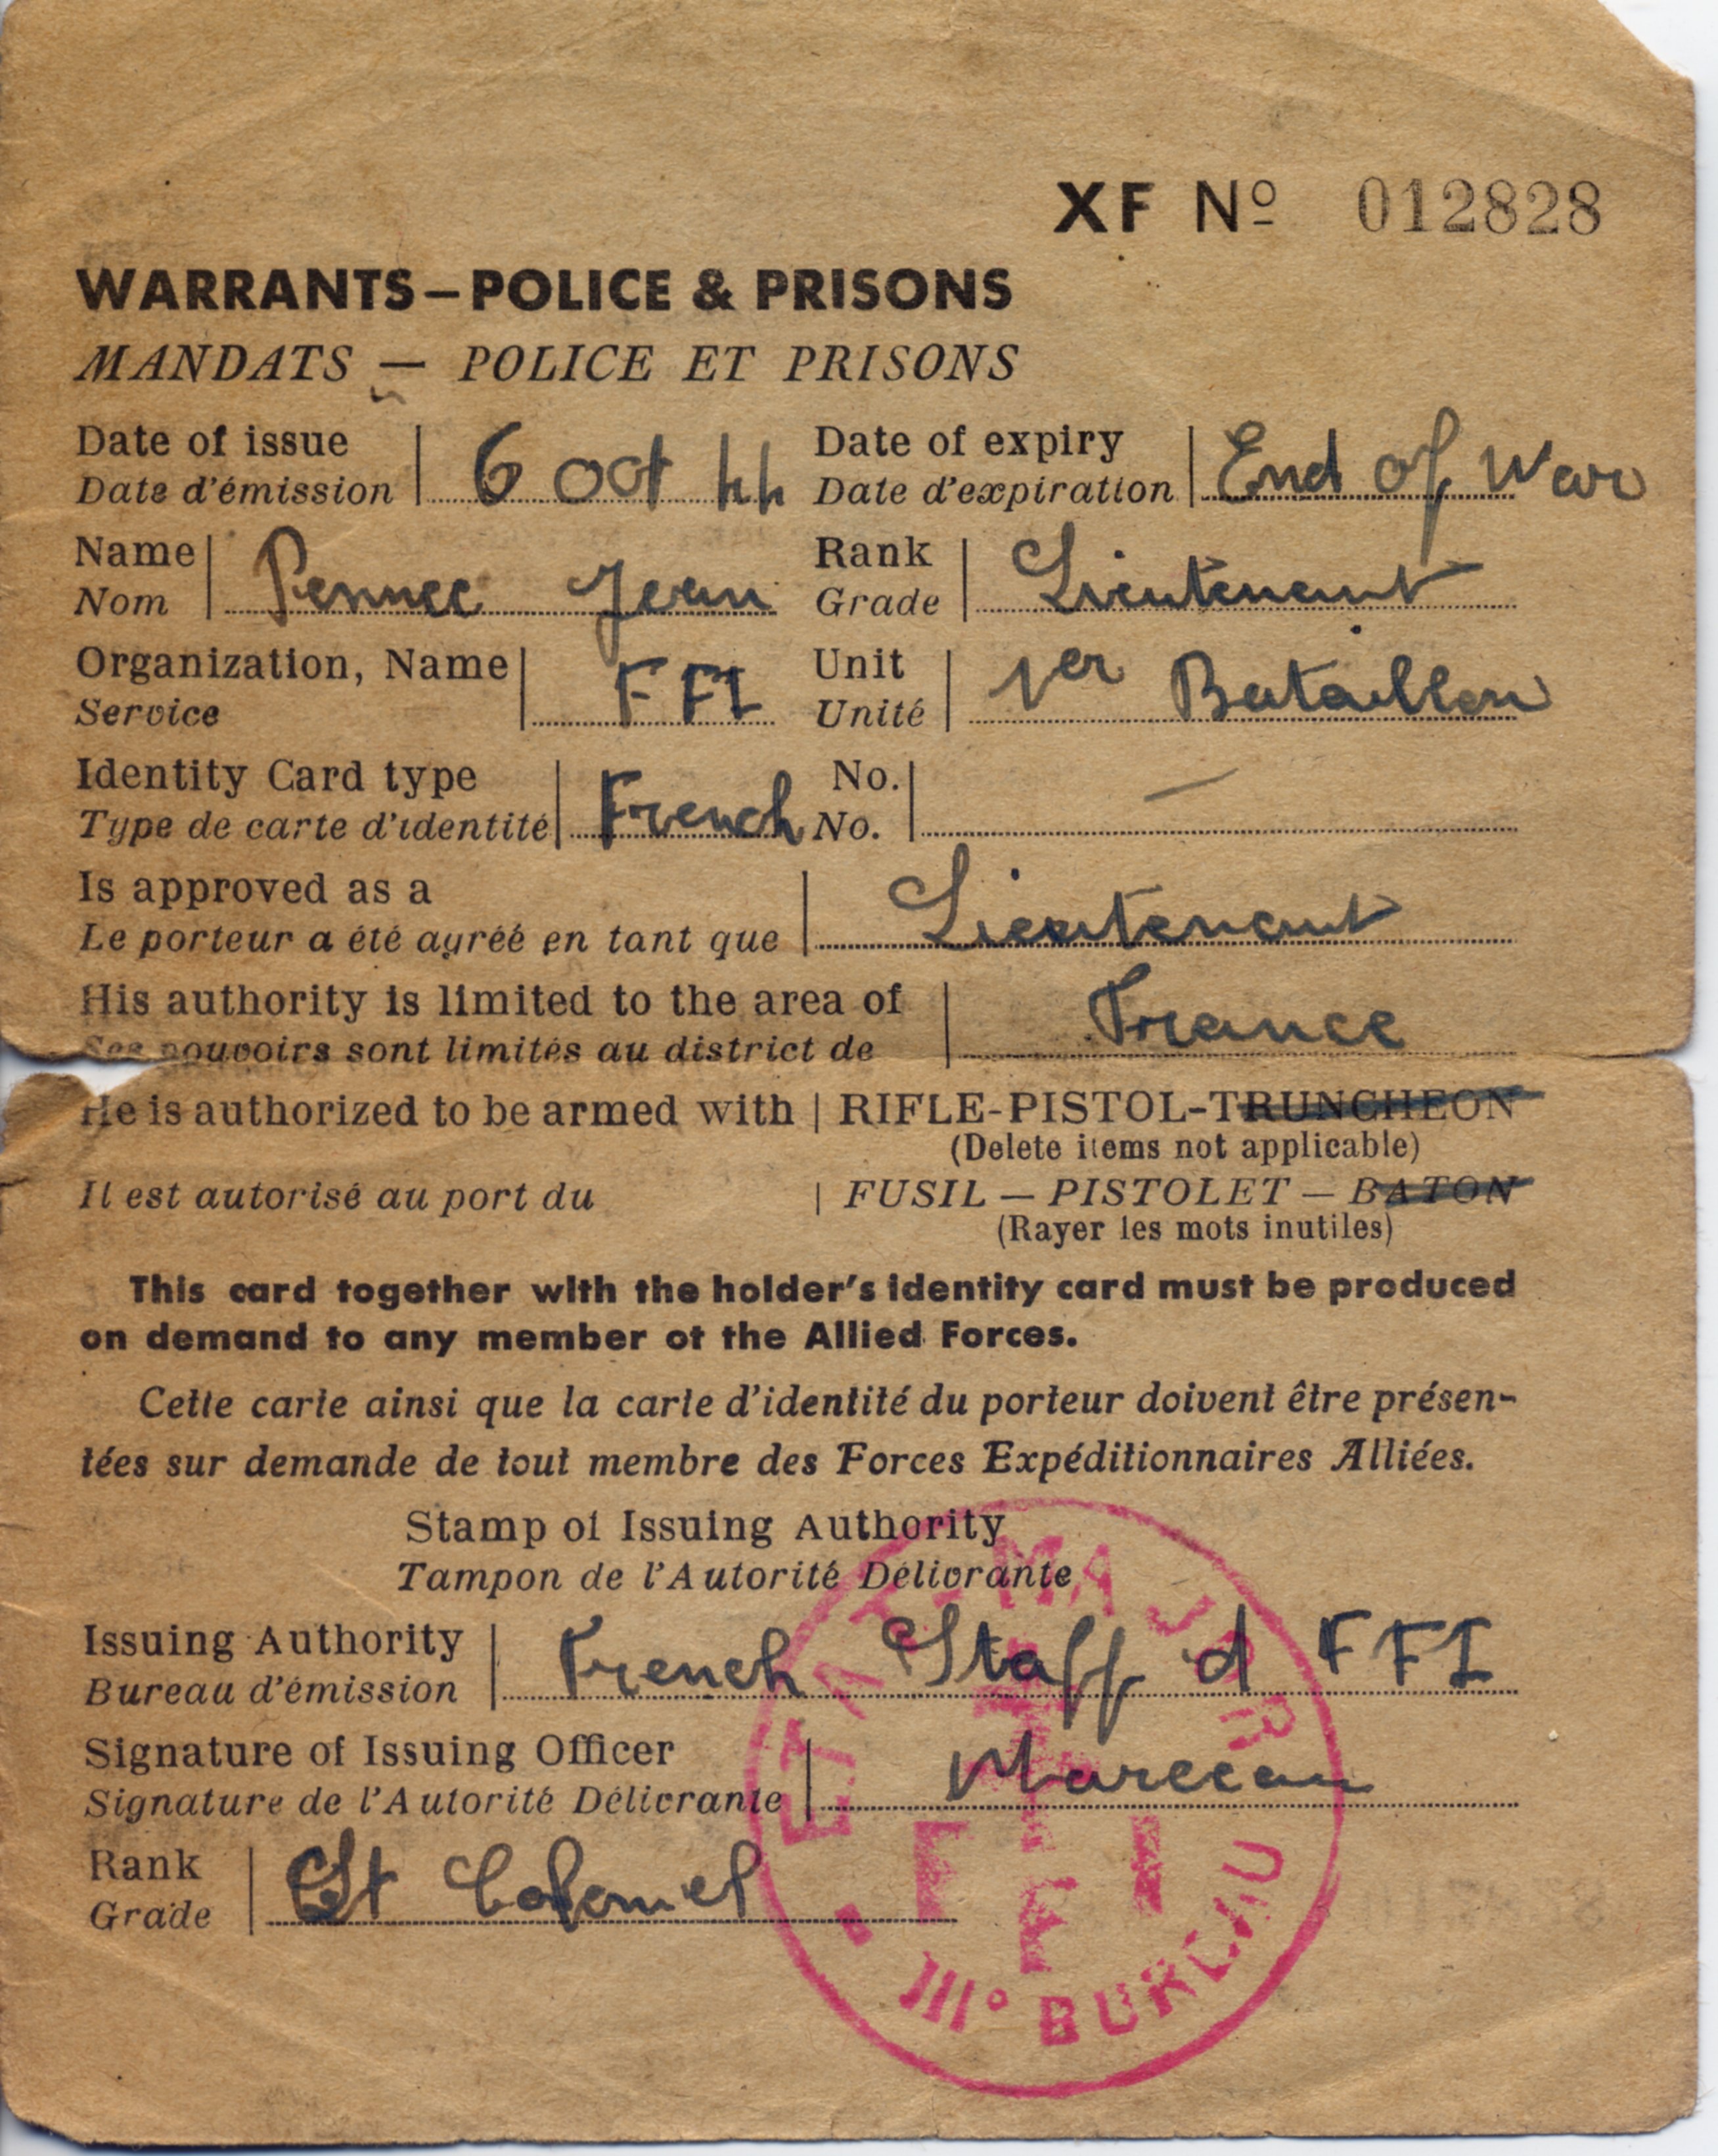 XF Nº 012828
WARRANTS – POLICE & PRISONS
MANDATS — POLICE ET PRISONS
Date of issue
Date d'émission
6 oct 44
Date of expiry
Date d'expiration
End of War
Name
Nom
Pennec Jean
Rank
Grade
Lieutenant
Organization, Name
Service
FFI
Unit
Unité
1er Bataillon
Identity Card type
Type de carte d'identité
French
No.
No.
—
Is approved as a
Le porteur a été agréé en tant que
Lieutenant
His authority is limited to the area of
Ses pouvoirs sont limités au district de
France
He is authorized to be armed with | RIFLE-PISTOL-TRUNCHEON
(Delete items not applicable)
Il est autorisé au port du | FUSIL — PISTOLET — BATON
(Rayer les mots inutiles)
This card together with the holder's identity card must be produced
on demand to any member of the Allied Forces.
Cette carte ainsi que la carte d'identité du porteur doivent être présen-
tées sur demande de tout membre des Forces Expéditionnaires Alliées.
Stamp of Issuing Authority
Tampon de l'Autorité Délivrante
Issuing Authority
Bureau d'émission
French Staff d FFI
Signature of Issuing Officer
Signature de l'Autorité Délivrante
Marceau
Rank
Grade
Lt Colonel
ETAT-MAJOR
FFI
IIIº BUREAU